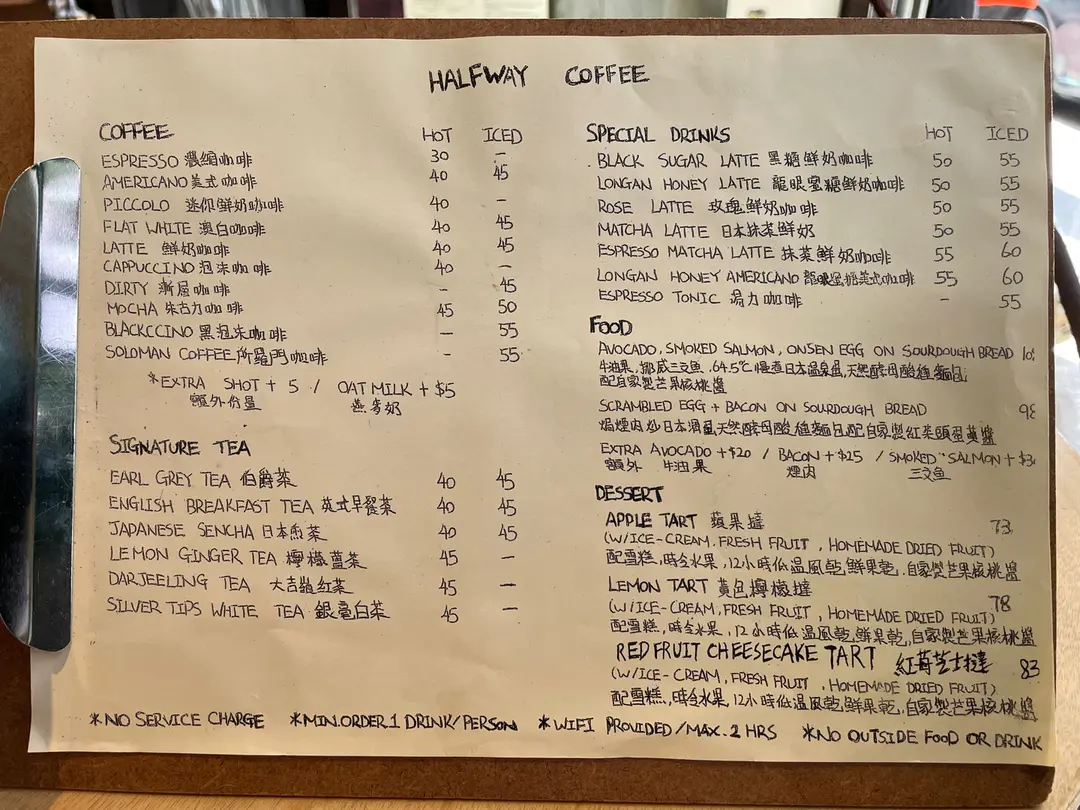 HALFWAY COFFEE
COFFEE HOT ICED
ESPRESSO 濃縮咖啡 30 –
AMERICANO 美式咖啡 40 45
PICCOLO 迷你鮮奶咖啡 40 –
FLAT WHITE 澳白咖啡 40 45
LATTE 鮮奶咖啡 40 45
CAPPUCCINO 泡沫咖啡 40 –
DIRTY 漸層咖啡 – 45
MOCHA 朱古力咖啡 45 50
BLACKCCINO 黑泡沫咖啡 – 55
SOLOMAN COFFEE 所羅門咖啡 – 55
*EXTRA SHOT + 5 / OAT MILK + $5
額外份量 燕麥奶
SIGNATURE TEA
EARL GREY TEA 伯爵茶 40 45
ENGLISH BREAKFAST TEA 英式早餐茶 40 45
JAPANESE SENCHA 日本煎茶 40 45
LEMON GINGER TEA 檸檬薑茶 45 –
DARJEELING TEA 大吉嶺紅茶 45 –
SILVER TIPS WHITE TEA 銀毫白茶 45 –
SPECIAL DRINKS HOT ICED
BLACK SUGAR LATTE 黑糖鮮奶咖啡 50 55
LONGAN HONEY LATTE 龍眼蜜糖鮮奶咖啡 50 55
ROSE LATTE 玫瑰鮮奶咖啡 50 55
MATCHA LATTE 日本抹茶鮮奶 50 55
ESPRESSO MATCHA LATTE 抹茶鮮奶咖啡 55 60
LONGAN HONEY AMERICANO 龍眼蜜糖美式咖啡 55 60
ESPRESSO TONIC 湯力咖啡 – 55
FOOD
AVOCADO, SMOKED SALMON, ONSEN EGG ON SOURDOUGH BREAD
牛油果, 挪威三文魚, 64.5℃慢煮日本溫泉蛋,天然酵母酸種麵包
配自家製芒果核桃醬
SCRAMBLED EGG + BACON ON SOURDOUGH BREAD
焗煙肉炒日本滑蛋天然酵母酸種麵包配自家製紅菜頭蛋黃醬
EXTRA AVOCADO +$20 / BACON + $25 / SMOKED SALMON +
額外 牛油果 煙肉 三文魚
DESSERT
APPLE TART 蘋果撻 73
(W/ICE-CREAM, FRESH FRUIT, HOMEMADE DRIED FRUIT)
配雪糕, 時令水果, 12小時低溫風乾鮮果乾, 自家製芒果核桃醬
LEMON TART 黃色檸檬撻 78
(W/ICE-CREAM, FRESH FRUIT, HOMEMADE DRIED FRUIT)
配雪糕, 時令水果, 12小時低溫風乾鮮果乾, 自家製芒果核桃醬
RED FRUIT CHEESECAKE TART 紅莓芝士撻 83
(W/ICE-CREAM, FRESH FRUIT, HOMEMADE DRIED FRUIT)
配雪糕, 時令水果, 12小時低溫風乾鮮果乾, 自家製芒果核桃醬
*NO SERVICE CHARGE *MIN.ORDER.1 DRINK/PERSON *WIFI PROVIDED/MAX.2 HRS *NO OUTSIDE FOOD OR DRINK